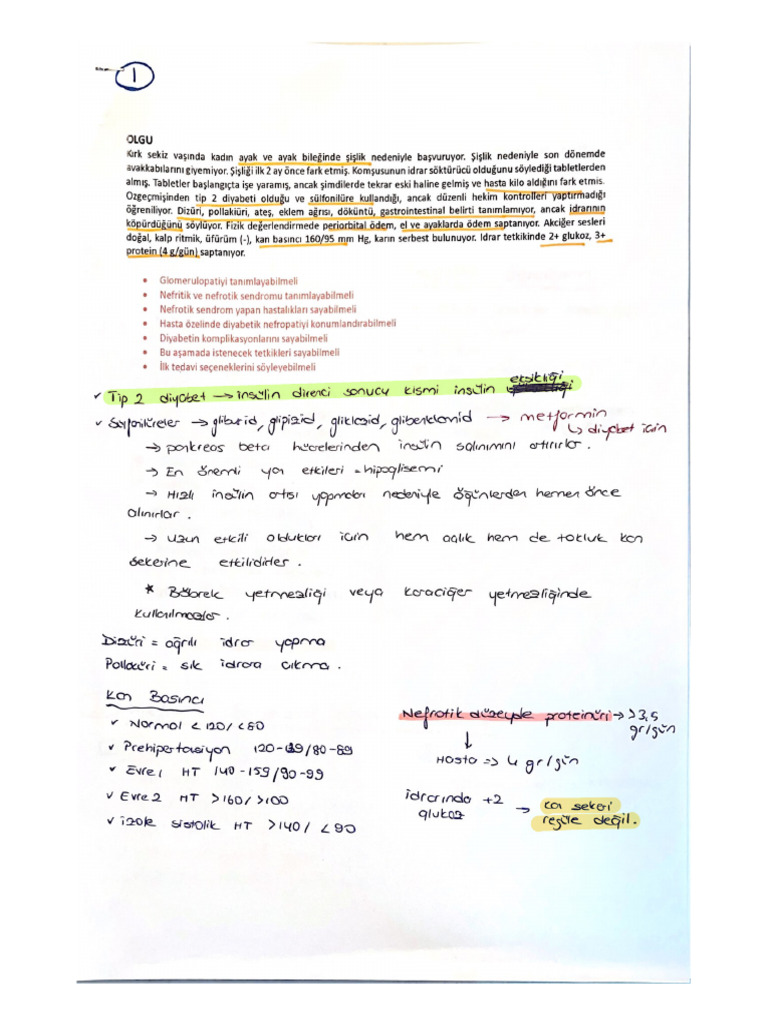 1
OLGU
Kırk sekiz yaşında kadın ayak ve ayak bileğinde şişlik nedeniyle başvuruyor. Şişlik nedeniyle son dönemde
ayakkabılarını giyemiyor. Şişliği ilk 2 ay önce fark etmiş. Komşusunun idrar söktürücü olduğunu söylediği tabletlerden
almış. Tabletler başlangıçta işe yaramış, ancak şimdilerde tekrar eski haline gelmiş ve hasta kilo aldığını fark etmiş.
Özgeçmişinden tip 2 diyabeti olduğu ve sülfonilüre kullandığı, ancak düzenli hekim kontrolleri yaptırmadığı
öğreniliyor. Dizüri, pollakiüri, ateş, eklem ağrısı, döküntü, gastrointestinal belirti tanımlamıyor, ancak idrarının
köpürdüğünü söylüyor. Fizik değerlendirmede periorbital ödem, el ve ayaklarda ödem saptanıyor. Akciğer sesleri
doğal, kalp ritmik, üfürüm (-), kan basıncı 160/95 mm Hg, karın serbest bulunuyor. Idrar tetkikinde 2+ glukoz, 3+
protein (4 g/gün) saptanıyor.
• Glomerulopatiyi tanımlayabilmeli
• Nefritik ve nefrotik sendromu tanımlayabilmeli
• Nefrotik sendrom yapan hastalıkları sayabilmeli
• Hasta özelinde diyabetik nefropatiyi konumlandırabilmeli
• Diyabetin komplikasyonlarını sayabilmeli
• Bu aşamada istenecek tetkikleri sayabilmeli
• İlk tedavi seçeneklerini söyleyebilmeli
✓ Tip 2 diyabet → insülin direnci sonucu kısmi insülin eksikliği
✓ → gliburid, glipizid, gliklazid, glibenklamid → metformin
↳ diyabet için
→ pankreas beta hücrelerinden insülin salınımını artırırlar.
→ En önemli yan etkileri = hipoglisemi
→ Hızlı insülin artışı yapmaları nedeniyle öğünlerden hemen önce
alınırlar.
→ Uzun etkili oldukları için hem açlık hem de tokluk kan
şekerine etkilidirler.
* Böbrek yetmezliği veya karaciğer yetmezliğinde
kullanılmazlar.
Dizüri = ağrılı idrar yapma
Pollaküri = sık idrara çıkma.
Kan Basıncı
✓ Normal < 120/ <80
✓ Prehipertansiyon 120-139/80-89
✓ Evre 1 HT 140-159/90-99
✓ Evre 2 HT >160/ >100
✓ izole sistolik HT >140/ <90
Nefrotik düzeyde proteinüri → >3,5
gr/gün
↓
Hasta => 4 gr/gün
idrarında +2
glukoz → kan şekeri
regüle değil.